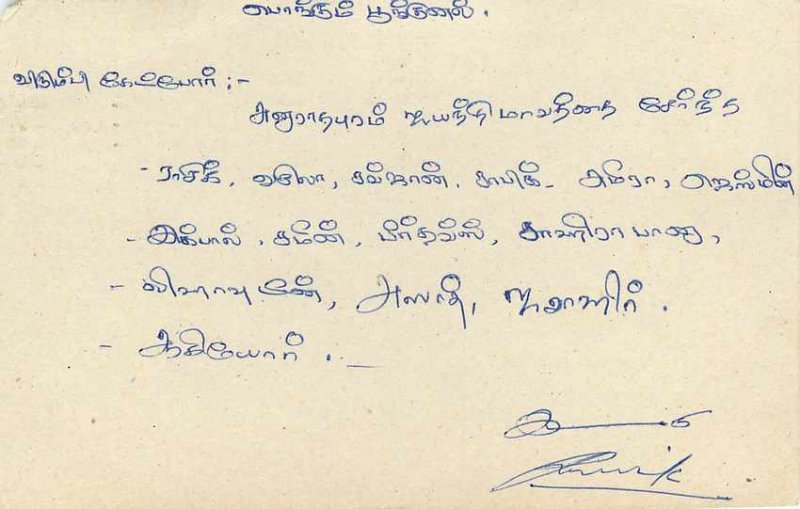 பொங்கும் பூம்புனல்.
விரும்பி கேட்போர் :-
அனுராதபுரம் ஜயந்தி மாவத்தை சேர்ந்த
- ராசிக், லீலா, சல்ஜான், சாபிக் - அமீரா, ஜெஸ்மின்
- இக்பால், சமீன், பிர்தவ்ஸ், சாஹிரா பானு,
- அஸாத், ஜவாஹிர்.
- ஆகியோர். -